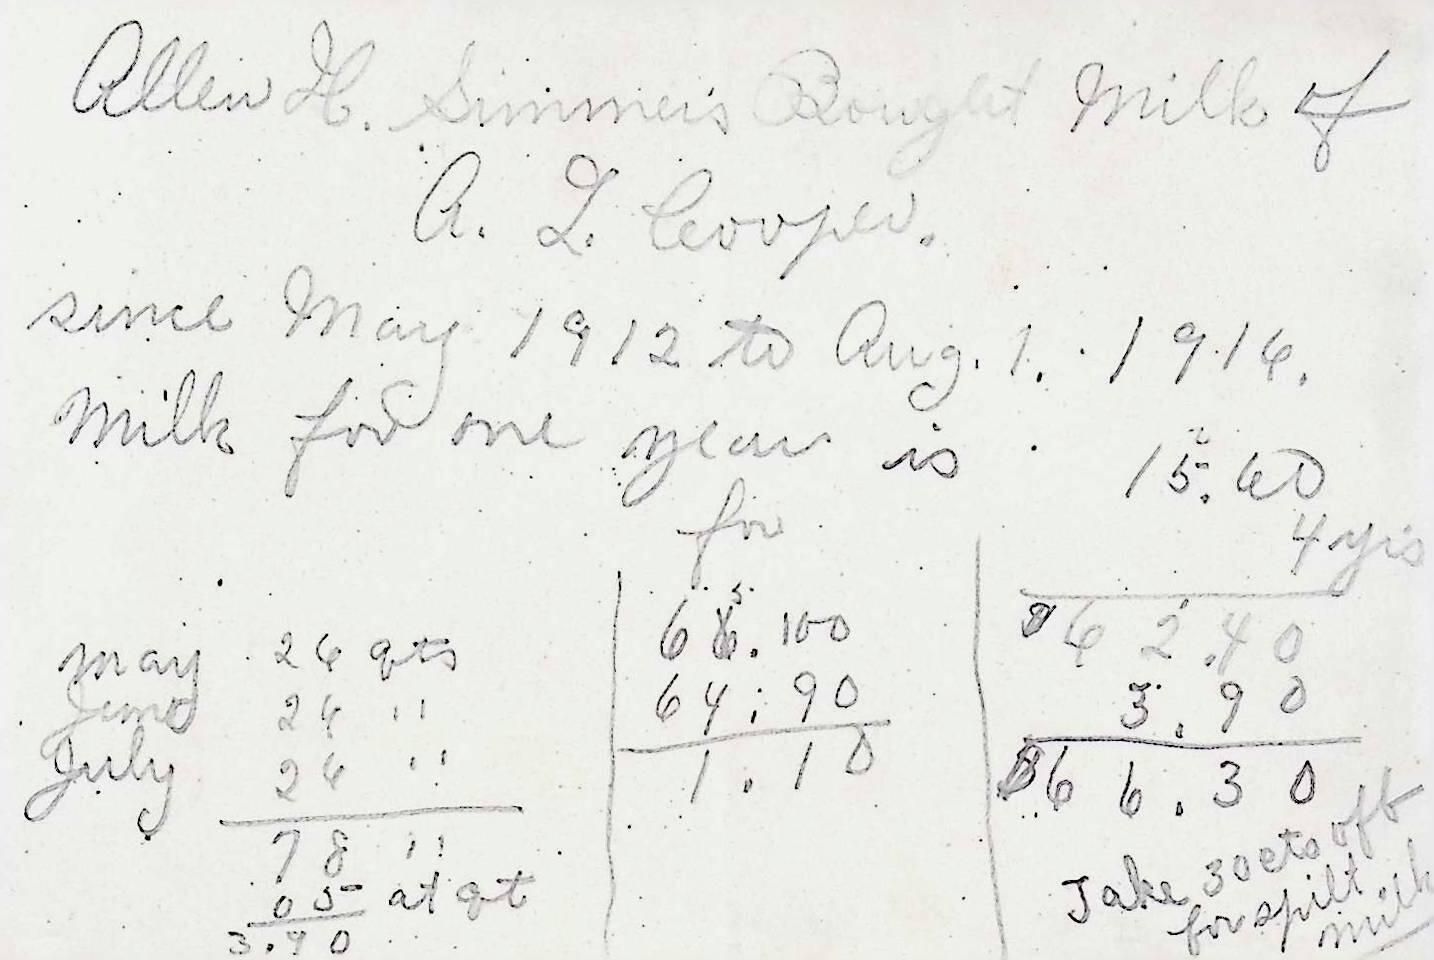 Allen H. Simmers Bought Milk of
A. L. Cooper.
since May 1912 to Aug. 1. 1916.
Milk for one year is 15.60
4 yrs
for
May 26 qts
June 26 "
July 26 "
78 "
05 at qt
3.90
66.100
64.90
1.10
$62.40
3.90
$66.30
Take 30 cts off
for spilt
milk